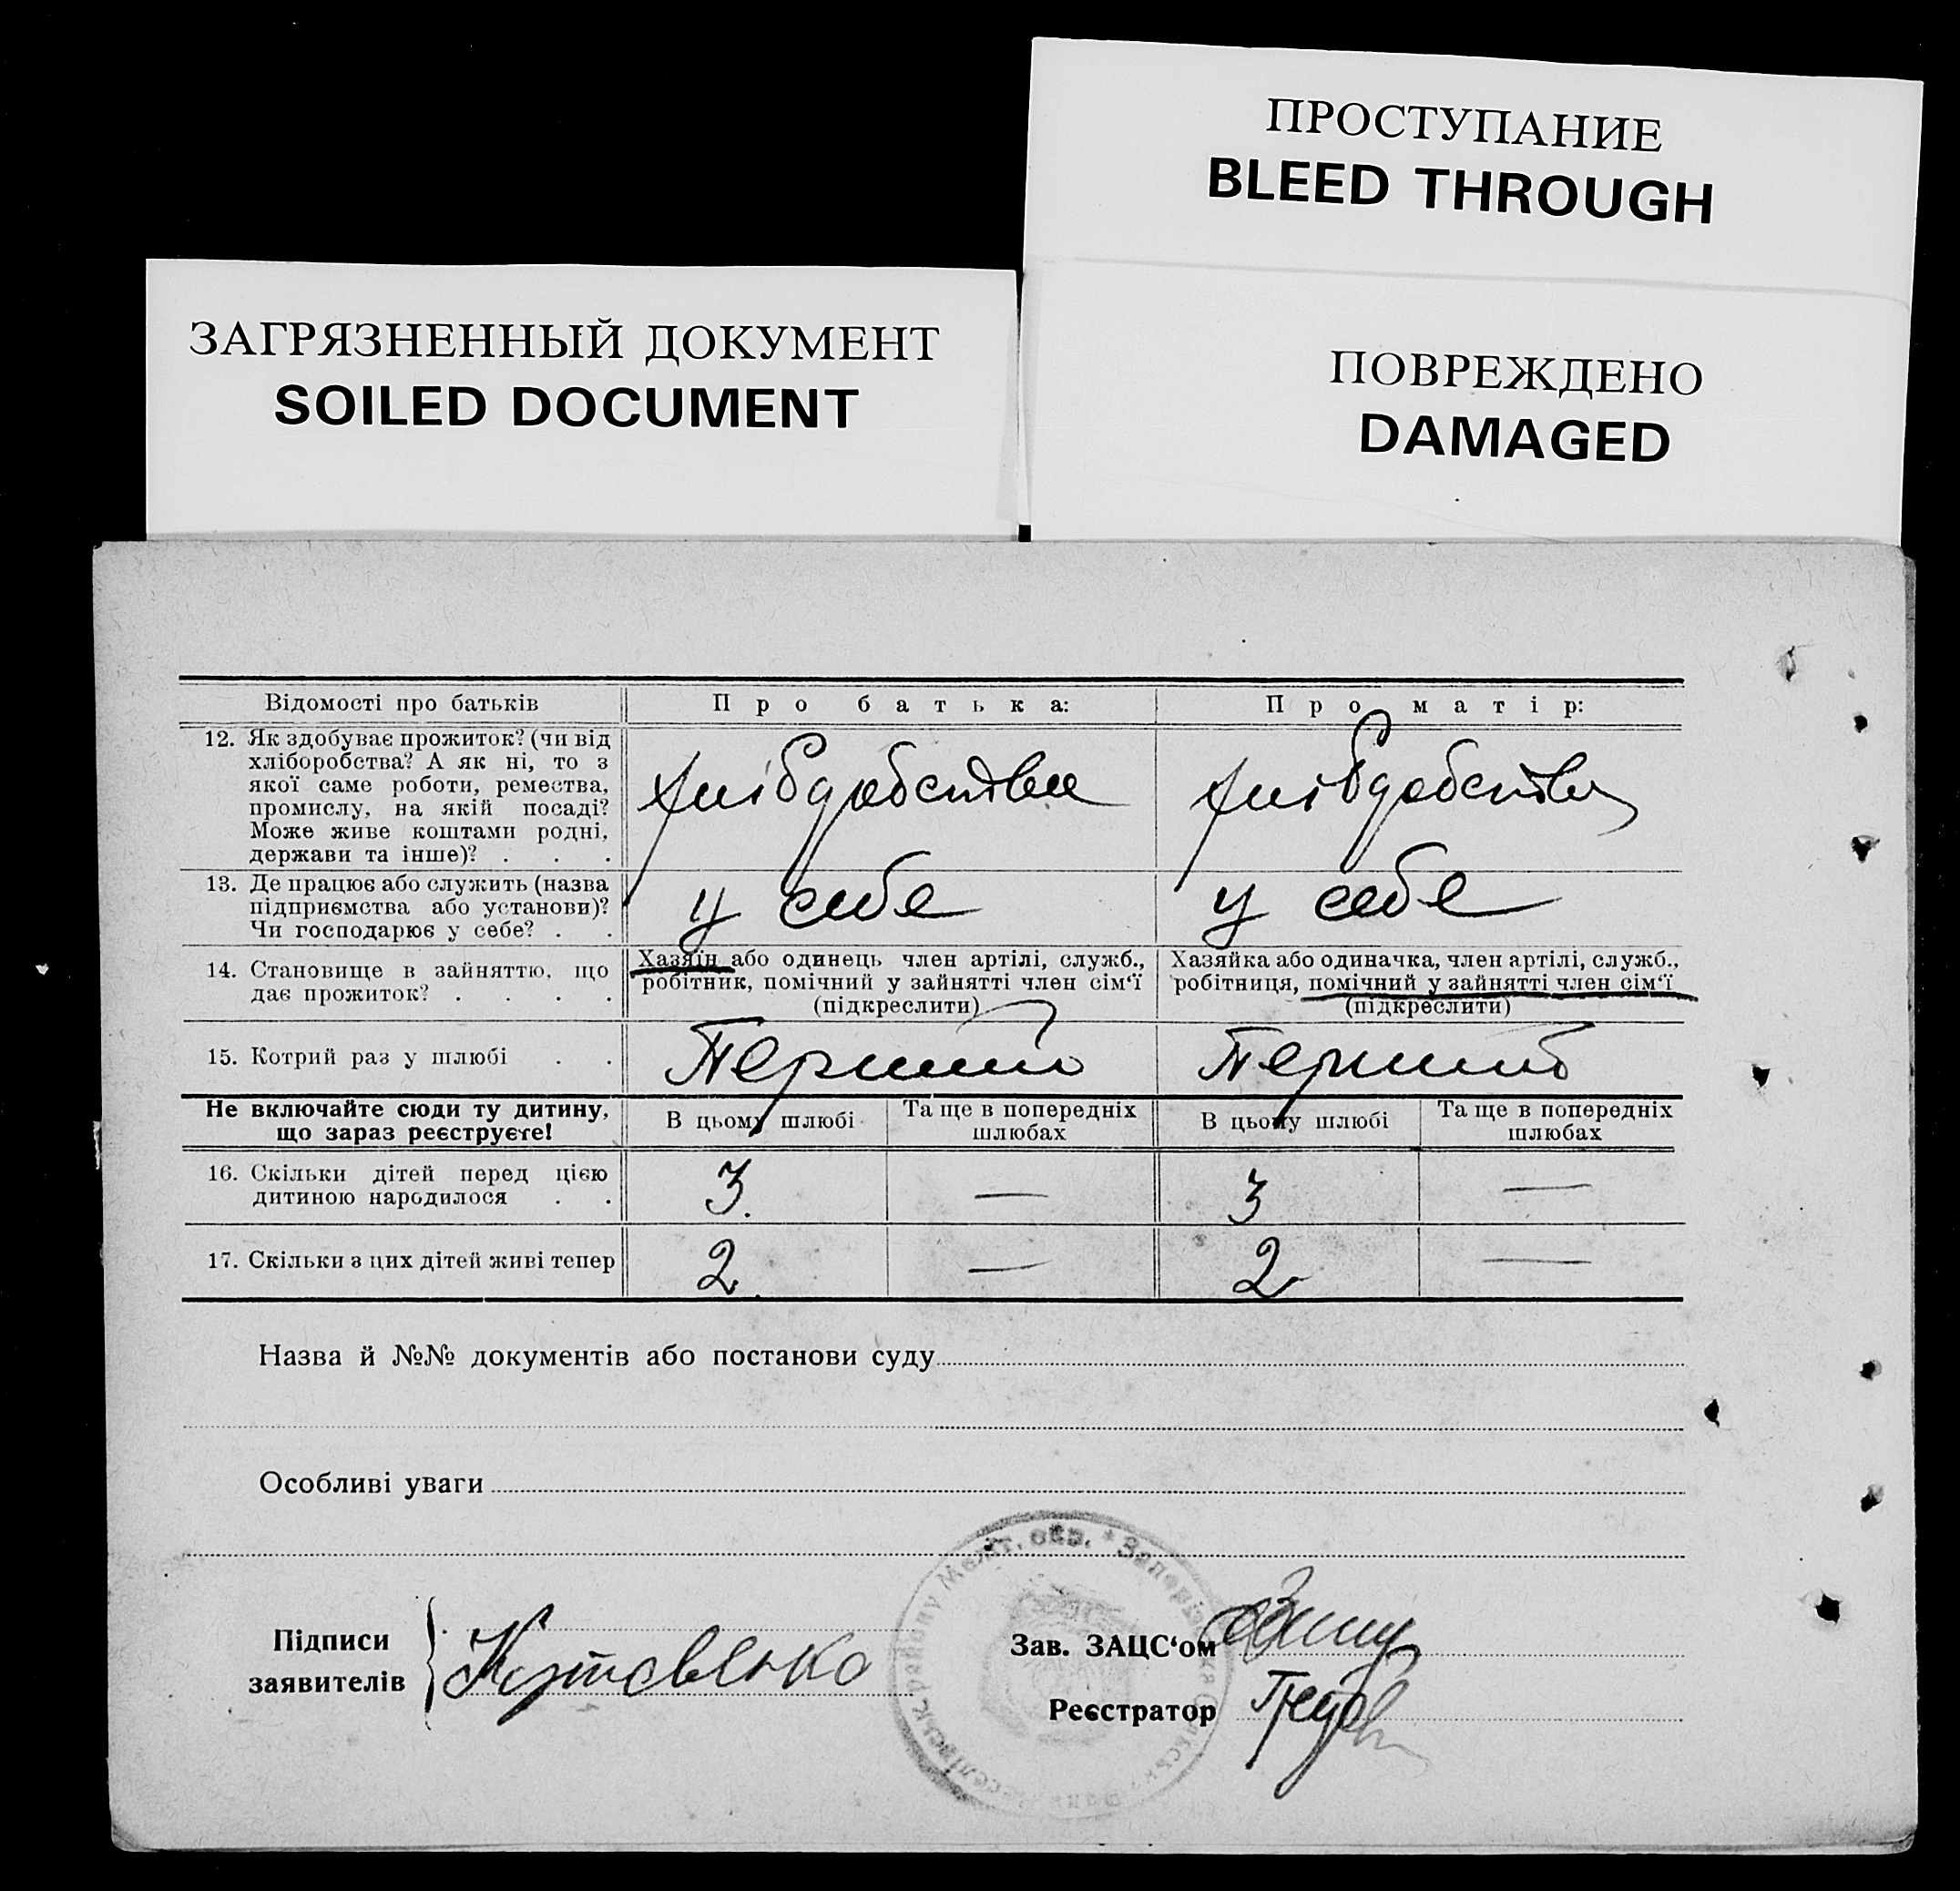 ПРОСТУПАНИЕ
BLEED THROUGH
ЗАГРЯЗНЕННЫЙ ДОКУМЕНТ
SOILED DOCUMENT
ПОВРЕЖДЕНО
DAMAGED
Відомості про батьків
Про батька:
Про матір:
12. Як здобуває прожиток? (чи від
хліборобства? А як ні, то з
якої саме роботи, ремества,
промислу, на якій посаді?
Може живе коштами родні,
держави та інше)? . . .
13. Де працює або служить (назва
підприємства або установи)?
Чи господарює у себе? . .
у себе
у себе
14. Становище в зайняттю, що
дає прожиток? . . . .
Хазяїн або одинець член артілі, служб.,
робітник, помічний у зайнятті член сім‘ї
(підкреслити)
Хазяйка або одиначка, член артілі, служб.,
робітниця, помічний у зайнятті член сім‘ї
(підкреслити)
15. Котрий раз у шлюбі . .
Перший
Перший
Не включайте сюди ту дитину,
що зараз реєструєте!
В цьому шлюбі
Та ще в попередніх
шлюбах
В цьому шлюбі
Та ще в попередніх
шлюбах
16. Скільки дітей перед цією
дитиною народилося . .
3. — 3 —
17. Скільки з цих дітей живі тепер
2. — 2 —
Назва й №№ документів або постанови суду
Особливі уваги
Підписи
заявителів
Зав. ЗАЦС‘ом
Реєстратор